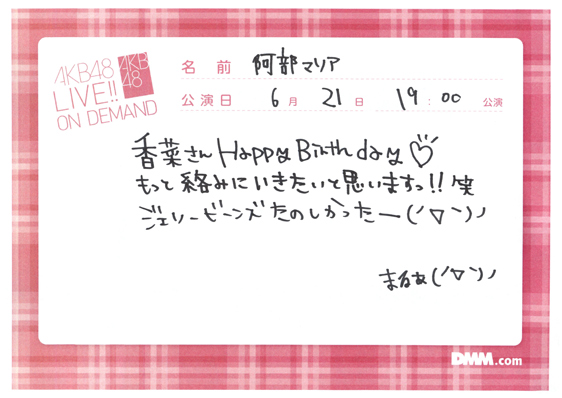 AKB48
LIVE!!
ON DEMAND
AKB
48
名 前 阿部マリア
公演日 6月 21日 19:00 公演
香菜さん Happy Birthday♡
もっと絡みにいきたいと思いますっ!!笑
ジェリービーンズたのしかったー(´▽`)ノ
まるあ(´▽`)ノ
DMM.com